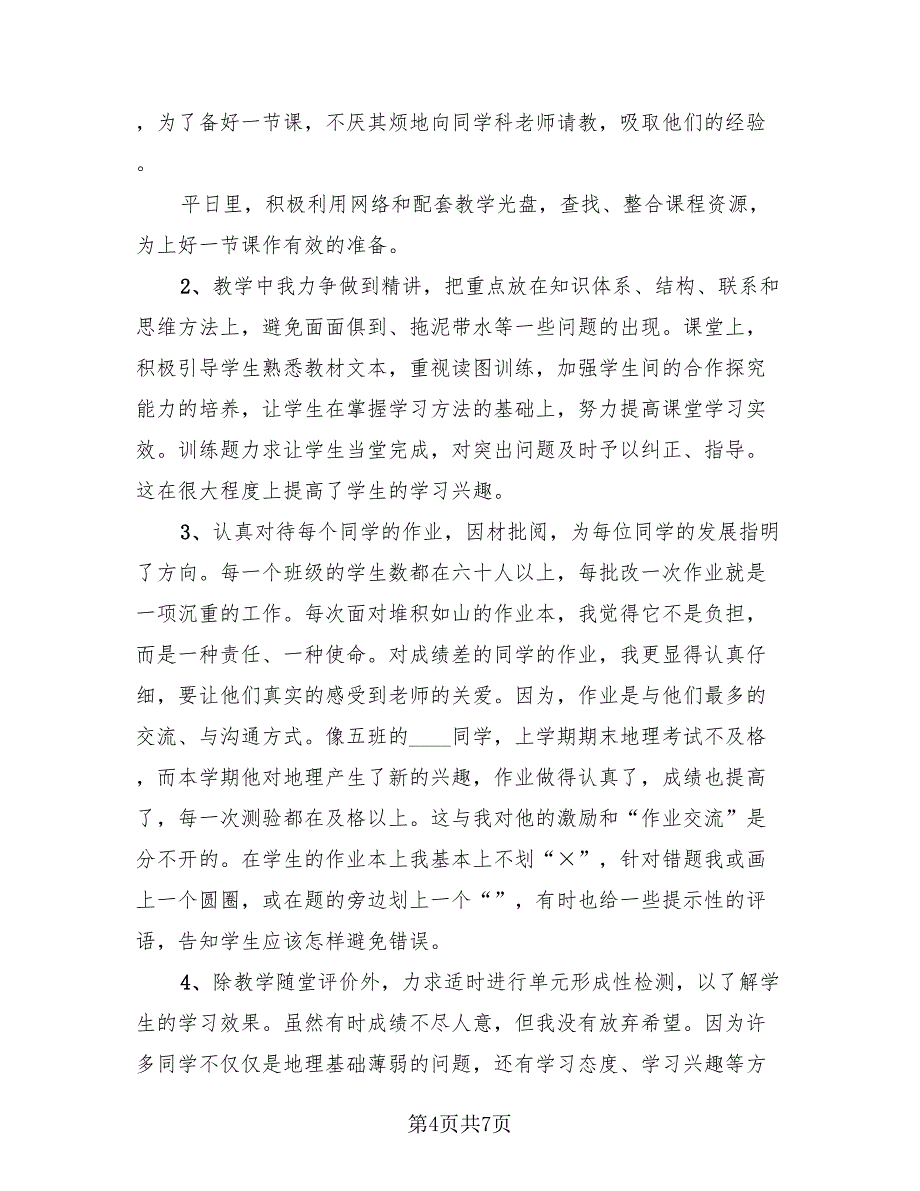 ，为了备好一节课，不厌其烦地向同学科老师请教，吸取他们的经验
。
平日里，积极利用网络和配套教学光盘，查找、整合课程资源，
为上好一节课作有效的准备。
2、教学中我力争做到精讲，把重点放在知识体系、结构、联系和
思维方法上，避免面面俱到、拖泥带水等一些问题的出现。课堂上，
积极引导学生熟悉教材文本，重视读图训练，加强学生间的合作探究
能力的培养，让学生在掌握学习方法的基础上，努力提高课堂学习实
效。训练题力求让学生当堂完成，对突出问题及时予以纠正、指导。
这在很大程度上提高了学生的学习兴趣。
3、认真对待每个同学的作业，因材批阅，为每位同学的发展指明
了方向。每一个班级的学生数都在六十人以上，每批改一次作业就是
一项沉重的工作。每次面对堆积如山的作业本，我觉得它不是负担，
而是一种责任、一种使命。对成绩差的同学的作业，我更显得认真仔
细，要让他们真实的感受到老师的关爱。因为，作业是与他们最多的
交流、与沟通方式。像五班的____同学，上学期期末地理考试不及格
，而本学期他对地理产生了新的兴趣，作业做得认真了，成绩也提高
了，每一次测验都在及格以上。这与我对他的激励和“作业交流”是
分不开的。在学生的作业本上我基本上不划“×”，针对错题我或画
上一个圆圈，或在题的旁边划上一个“”，有时也给一些提示性的评
语，告知学生应该怎样避免错误。
4、除教学随堂评价外，力求适时进行单元形成性检测，以了解学
生的学习效果。虽然有时成绩不尽人意，但我没有放弃希望。因为许
多同学不仅仅是地理基础薄弱的问题，还有学习态度、学习兴趣等方
第4页共7页